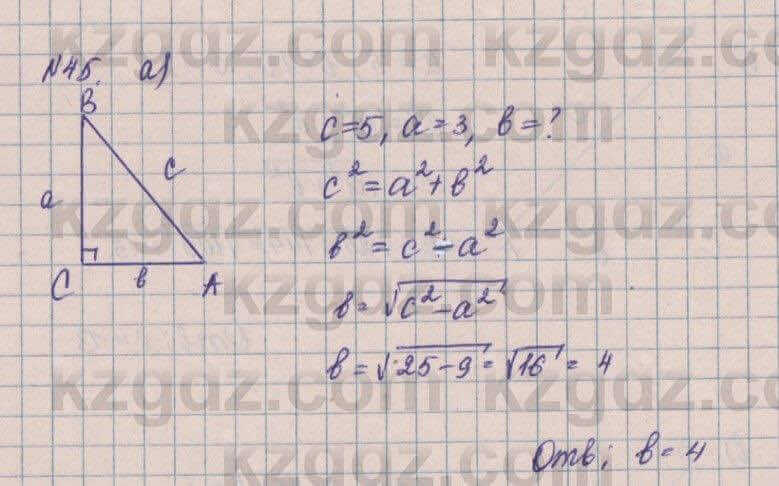 №45. а)
B
c
a
C
в
A
c=5, a=3, в=?
c²=a²+в²
в²=c²-a²
в=√c²-a²
в=√25-9=√16=4
Отв; в=4
kzgdz.com kzgdz.com
kzgdz.com
kzgdz.com kzgdz.com
kzgdz.com
kzgdz.com kzgdz.com
kzgdz.com